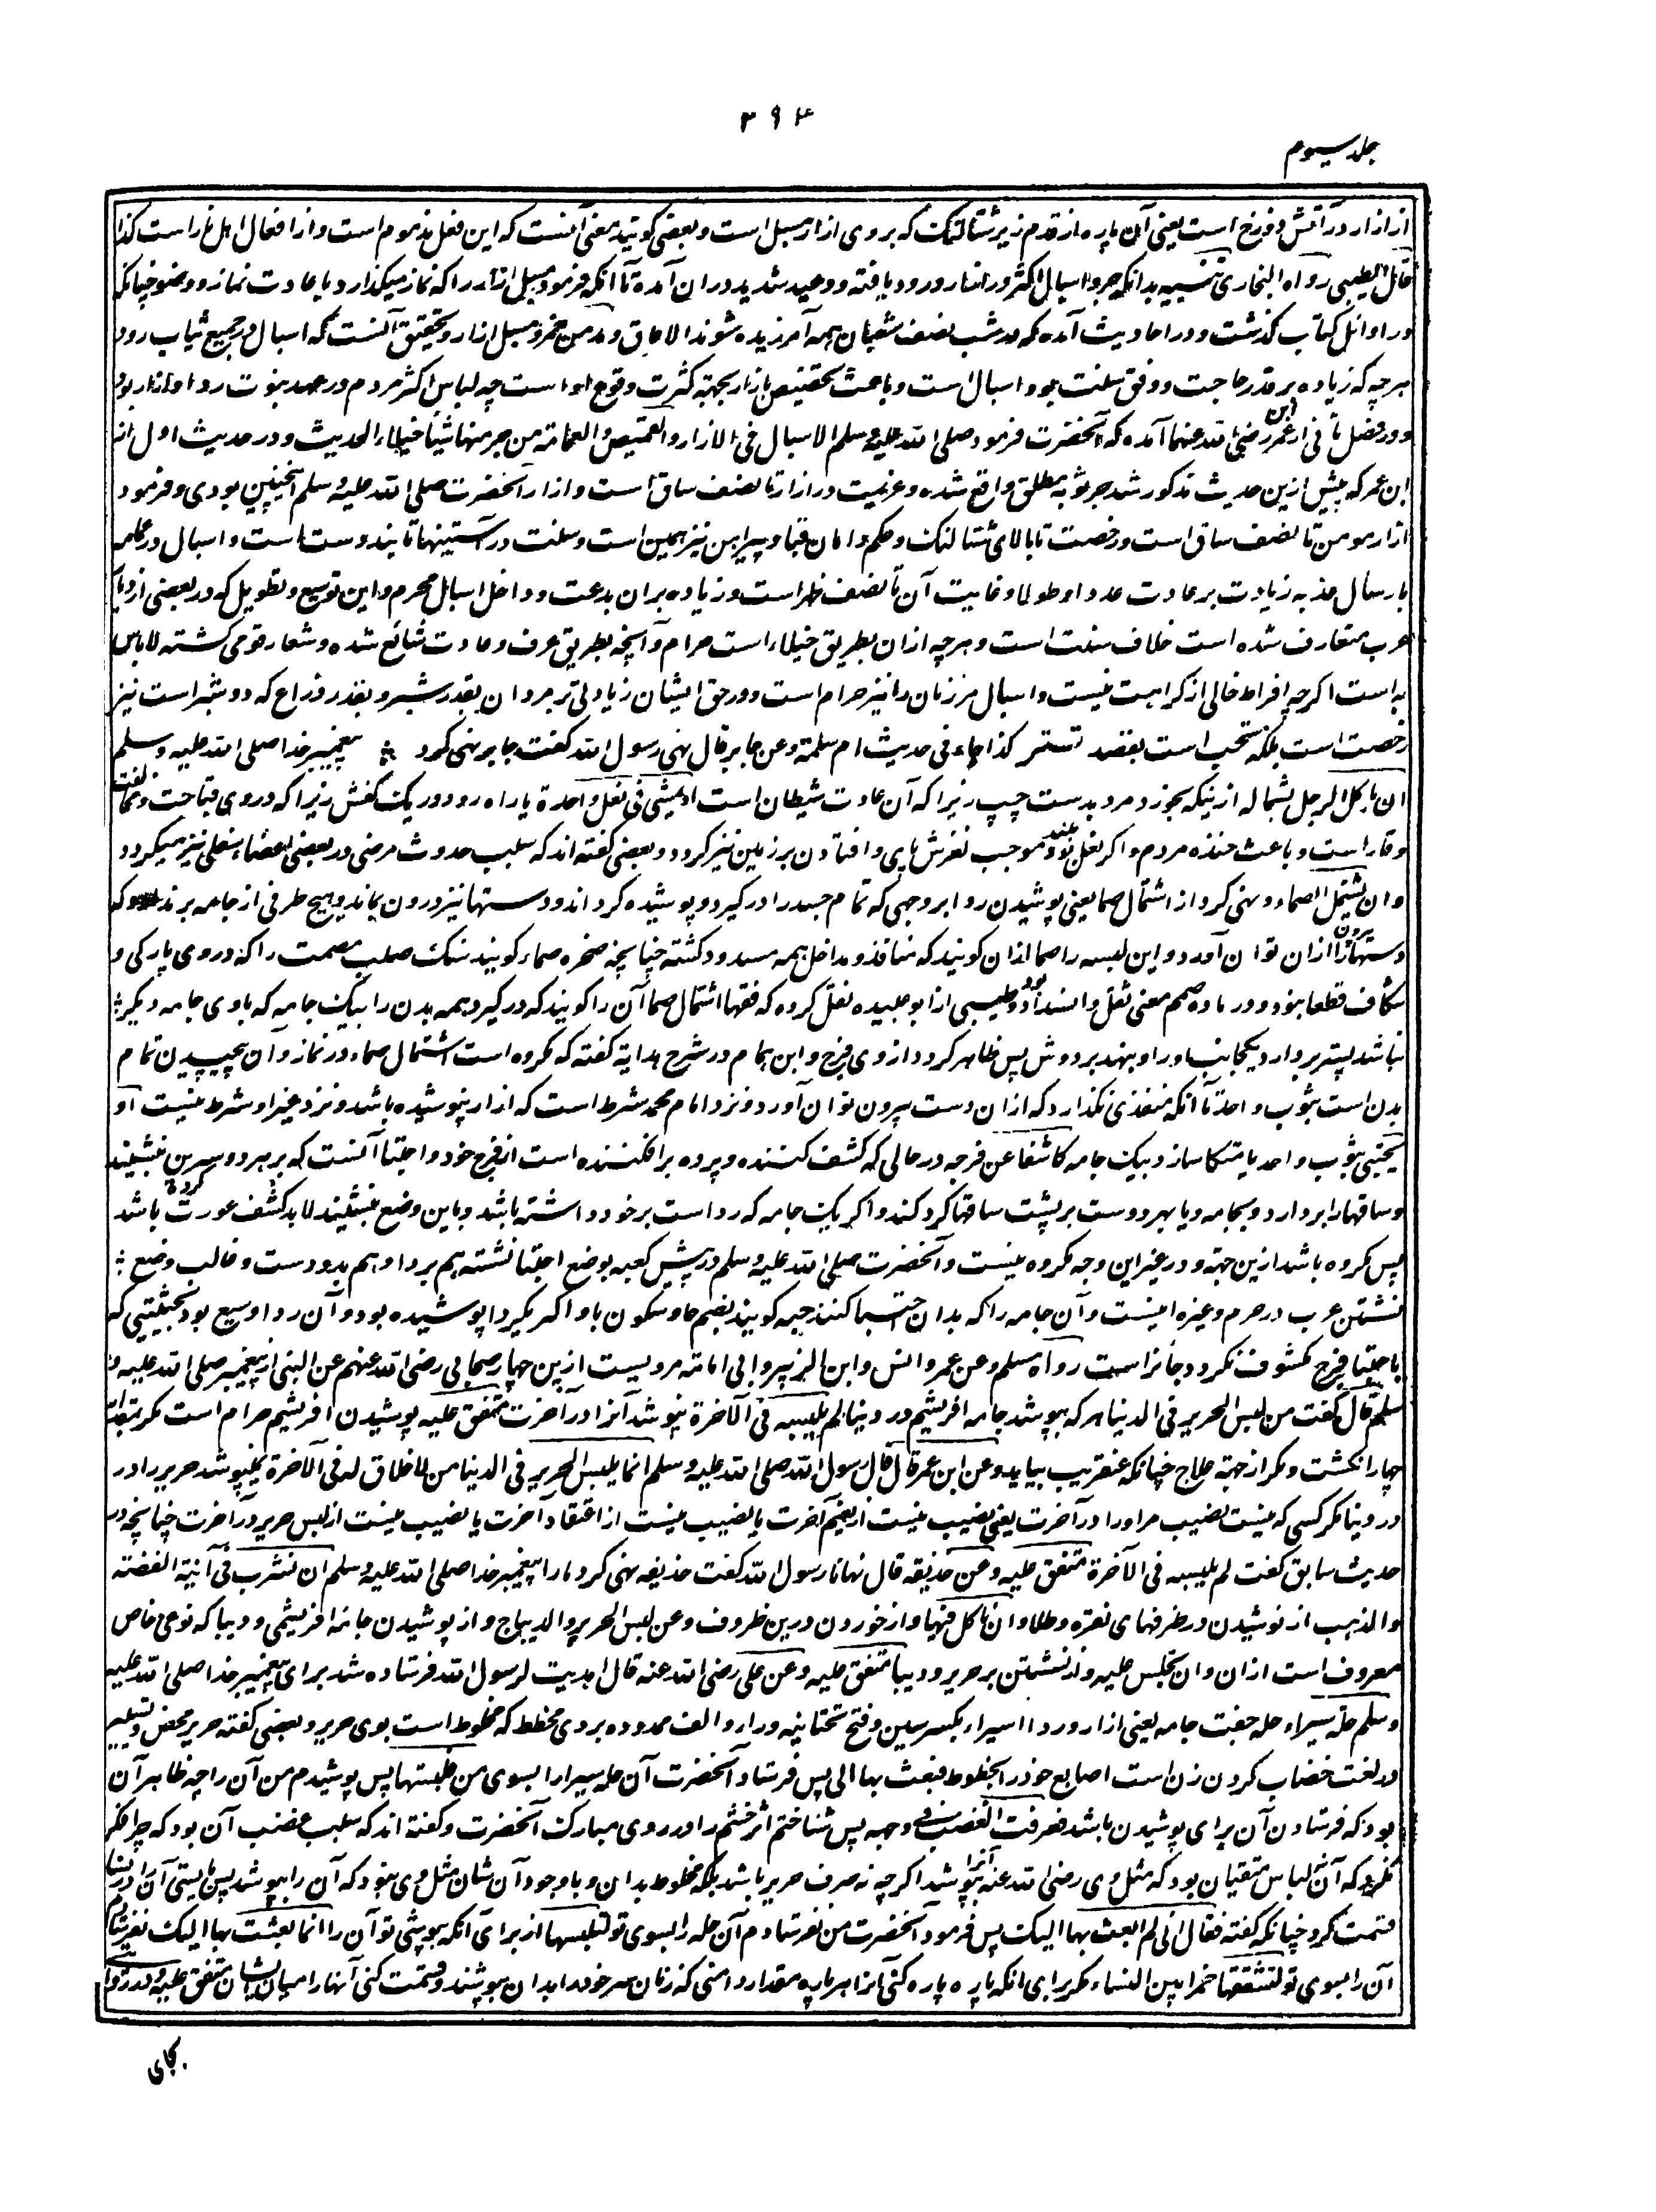 ۳۹۴
جلد سیوم
از ازار در آتش دوزخ است یعنی آن پاره از قدم زیر شتالنگ که بروی ازار مسبل است و بعضی گویند معنی آنست که این فعل مذموم است و از افعال اهل نار است کذا
قال الطیبی رواه البخاری تنبیه بدانکه جر و اسبال اکثر در ازار ورود یافته و وعید شدید دران آمده تا آنکه فرمود مسبل ازار را که نماز میگذارد باعادت نماز و وضو چنانکه
در اوائل کتاب گذشت و در احادیث آمده که در شب نصف شعبان همه آمرزیده شوند الا عاق و مدمن خمر و مسبل ازار و تحقیق آنست که اسبال در جمیع ثیاب رود
هرچه که زیاده بر قدر حاجت و وفق سنت بود اسبال است و باعث تخصیص بازار بجهة کثرت وقوع او است چه لباس اکثر مردم در عهد نبوت ردا و ازار بود
و در فصل ثانی از ابن عمر رضی الله عنهما آمده که آنحضرت فرمود صلی الله علیه و سلم الاسبال فی الازار والقمیص والعمامة من جر منها شیئا خیلاء الحدیث و در حدیث اول از
ابن عمر که پیش ازین حدیث مذکور شد جر ثوبه مطلق واقع شده و عزیمت در ازار تا نصف ساق است و ازار آنحضرت صلی الله علیه و سلم اینچنین بودی و فرمود
ازار مومن تا نصف ساق است و رخصت تا بالای شتالنگ و حکم دامان قبا و پیراهن نیز همین است و سنت در آستینها تا بند دست است و اسبال در عمامه
بارسال عذبه زیادت بر عادت عددا و طولا و غایت آن تا نصف ظهر است و زیاده بران بدعت و داخل اسبال محرم و این توسیع و تطویل که در بعضی از دیار
عرب متعارف شده است خلاف سنت است و هرچه ازان بطریق خیلاء است حرام و آنچه بطریق عرف و عادت شائع شده و شعار قومی گشته لا باس
به است اگرچه افراط خالی از کراهت نیست و اسبال مر زنان را نیز حرام است و در حق ایشان زیادتی بر مردان بقدر شبر و بقدر ذراع که دو شبر است نیز
رخصت است بلکه مستحب است بقصد تستر کذا جاء فی حدیث ام سلمة و عن جابر قال نهی رسول الله گفت جابر نهی کرد پیغمبر خدا صلی الله علیه و سلم
ان یاکل الرجل بشماله ازینکه بخورد مرد بدست چپ زیرا که آن عادت شیطان است او یمشی فی نعل واحدة یا راه رود در یک کفش زیرا که دروی قباحت و مخالفت
وقار است و باعث خنده مردم و اگر نعل بلند بود موجب لغزش پای و افتادن بر زمین نیز گردد و بعضی گفته اند که سبب حدوث مرضی در بعضی اعضاء سفلی نیز میگردد
وان یشتمل الصماء و نهی کرد از اشتمال صما یعنی پوشیدن ردا بر وجهی که تمام جسد را درگیرد و پوشیده گرداند و دستها نیز درون بماند و هیچ طرفی از جامه برندارد که
دستها را ازان بیرون توان آورد و این لبسه را صما ازان گویند که منافذ و مداخل همه مسدود گشته چنانچه صخره صماء گویند سنگ صلب مصمت را که دروی پارگی و
شگاف قطعا نبود و در ماده صمم معنی ثقل و انسداد بود و طیبی از ابو عبیده نقل کرده که فقها اشتمال صما آن را گویند که درگیرد همه بدن را بیک جامه که با وی جامه دیگر
نباشد پستر بردارد یکجانب او را و بنهد بر دوش پس ظاهر گردد از وی فرج و ابن همام در شرح هدایه گفته که مکروه است اشتمال صماء در نماز و آن پیچیدن تمام
بدن است بثوب واحد تا آنکه منفذی نگذارد که ازان دست بیرون توان آورد و نزد امام محمد شرط است که ازار نپوشیده باشد و نزد غیر او شرط نیست او
یحتبی بثوب واحد یا متکا سازد بیک جامه کاشفا عن فرجه در حالی که کشف کننده و پرده بر افکننده است از فرج خود و احتبا آنست که بر هر دو سرین بنشیند
و ساقها را بردارد و بجامه و یا بهر دو دست بر پشت ساقها گرد کند و اگر یک جامه که ردا است بر خود داشته باشد و باین وضع بنشیند لابد کشف عورت کرده باشد
پس مکروه باشد ازین جهة و در غیر این وجه مکروه نیست و آنحضرت صلی الله علیه و سلم در پیش کعبه بوضع احتبا نشسته هم بردا و هم بدو دست و غالب وضع
نشستن عرب در حرم و غیره اینست و آن جامه را که بدان احتبا کنند حبه گویند بضم حا و سکون با و اگر یک ردا پوشیده بود و آن ردا وسیع بود بحیثیتی که
با احتبا فرج مکشوف نگردد جائز است رواه مسلم و عن عمر و انس و ابن الزبیر و ابی امامة مرویست ازین چهار صحابی رضی الله عنهم عن النبی از پیغمبر صلی الله علیه و
سلم قال گفت من لبس الحریر فی الدنیا هر که بپوشد جامه افریشم در دنیا لم یلبسه فی الآخرة نپوشد آنرا در آخرت متفق علیه پوشیدن افریشم حرام است مگر بمقدار
چهار انگشت و مگر از جهة علاج چنانکه عنقریب بیاید و عن ابن عمر قال قال رسول الله صلی الله علیه و سلم انما یلبس الحریر فی الدنیا من لا خلاق له فی الآخرة نمیپوشد حریر را در
در دنیا مگر کسی که نیست نصیب مر او را در آخرت یعنی نصیب نیست از نعیم آخرت یا نصیب نیست از اعتقاد آخرت یا نصیب نیست از لبس حریر در آخرت چنانچه در
حدیث سابق گفت لم یلبسه فی الآخرة متفق علیه و عن حذیفة قال نهانا رسول الله گفت حذیفه نهی کرد مارا پیغمبر خدا صلی الله علیه و سلم ان نشرب فی آنیة الفضة
والذهب از نوشیدن در ظرفهای نقره و طلا وان ناکل فیها و از خوردن درین ظروف و عن لبس الحریر والدیباج و از پوشیدن جامه افریشمی و دیبا که نوعی خاص
معروف است ازان وان نجلس علیه و از نشستن بر حریر و دیبا متفق علیه و عن علی رضی الله عنه قال اهدیت لرسول الله فرستاده شد برای پیغمبر خدا صلی الله علیه
و سلم حلة سیراء حله جفت جامه یعنی ازار و ردا سیراء بکسر سین و فتح تحتانیه و را و الف ممدوده بردی مخطط که مخلوط است بوی حریر و بعضی گفته حریر محض و تسییر
در لغت خضاب کردن زن است اصابع خود را بخطوط فبعث بها الی پس فرستاد آنحضرت آن حله سیرا را بسوی من فلبستها پس پوشیدم من آن را چه ظاهر آن
بود که فرستادن آن برای پوشیدن باشد فعرفت الغضب فی وجهه پس شناختم اثر خشم را در روی مبارک آنحضرت و گفته اند که سبب غضب آن بود که چرا فکر
نکرد که آن لباس متقیان نبود که مثل وی رضی الله عنه آنرا پوشد اگرچه نه صرف حریر باشد بلکه مخلوط بدان و با وجود آن شان مثل وی نبود که آن را بپوشد پس بایستی آن را در نساء
قسمت کرد چنانکه گفته فقال انی لم ابعث بها الیک پس فرمود آنحضرت من نفرستادم آن حله را بسوی تو لتلبسها از برای آنکه بپوشی تو آن را انما بعثت بها الیک نفرستادم
آن را بسوی تو لتشققها خمرا بین النساء مگر برای آنکه پاره پاره کنی آنرا هر پاره مقدار دامنی که زنان سر خود را بدان بپوشند و قسمت کنی آنها را میان ایشان متفق علیه
بجای